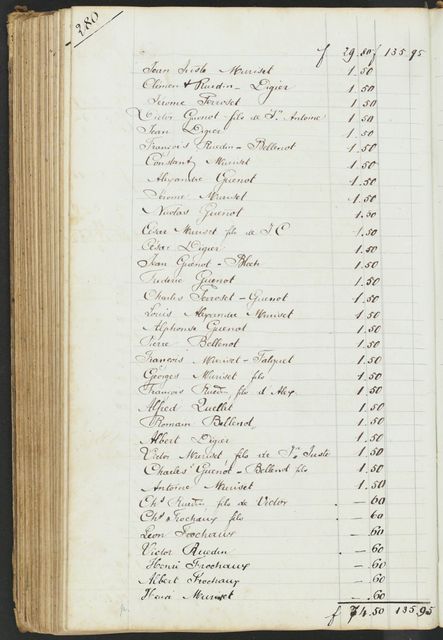 280
f 29.80 f 135.95
Jean Juste Muriset 1.50
Clément Ruedin - Digier 1.50
Jerome Perroset 1.50
Victor Guenot fils de Jn Antoine 1.50
Jean Digier 1.50
François Ruedin - Bellenot 1.50
Constant Muriset 1.50
Alexandre Guenot 1.50
Jérome Muriset 1.50
Nicolas Guenot 1.50
César Muriset fils de J. C 1.50
César Digier 1.50
Jean Guenot - Bloch 1.50
Frederic Guenot 1.50
Charles Perroset - Guenot 1.50
Louis Alexandre Muriset 1.50
Alphonse Guenot 1.50
Pierre Bellenot 1.50
François Muriset - 1.50
Georges Muriset fils 1.50
François Ruedin fils d'Alex 1.50
Alfred Quellet 1.50
Romain Bellenot 1.50
Albert Digier 1.50
Victor Muriset, fils de Jn Juste 1.50
Charles Guenot - Bellenot fils 1.50
Antoine Muriset 1.50
Chs Ruedin, fils de Victor — 60
Chs Frochaux fils . 60
Leon Frochaux — .60
Victor Ruedin — .60
Henri Frochaux — .60
Albert Frochaux — .60
Henri Muriset — .60
f 74.50 135.95